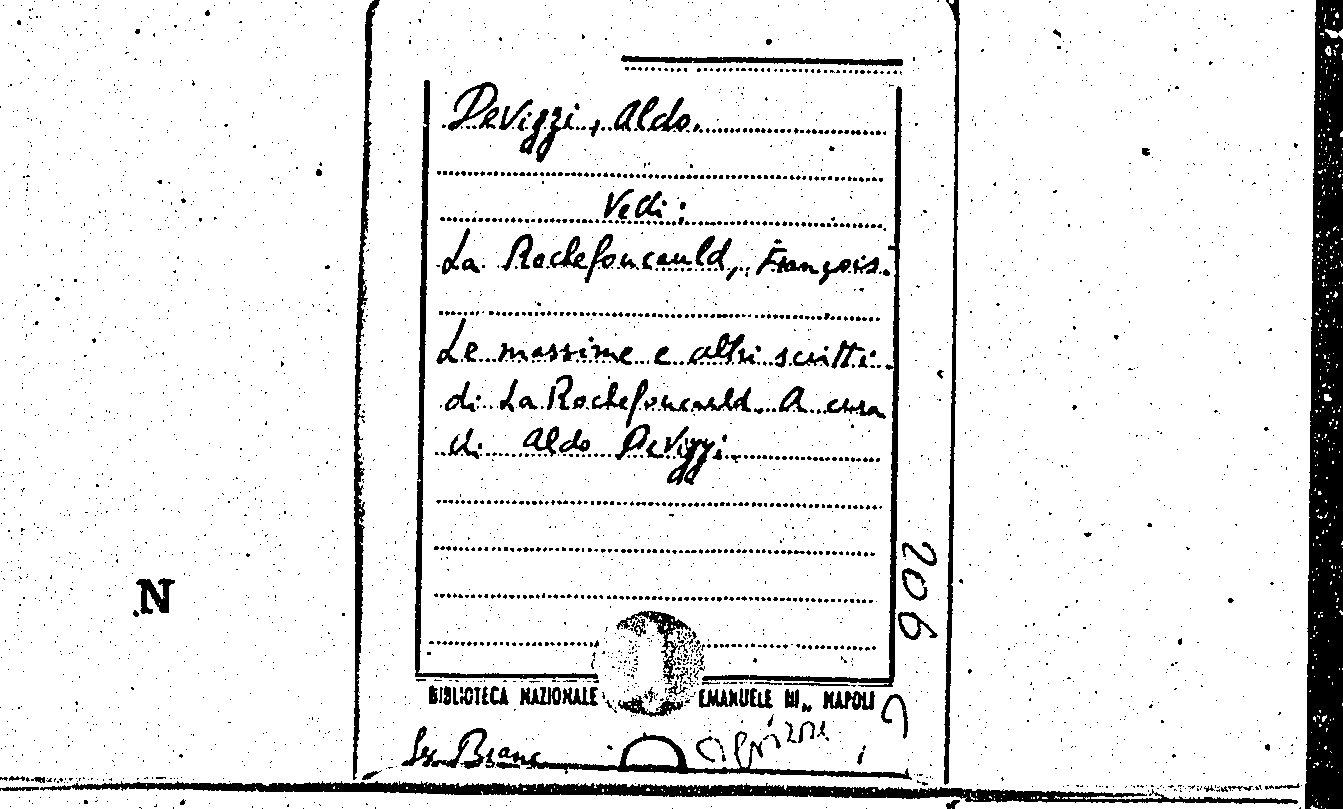 DeVizzi, Aldo.
Vedi:
La Rochefoucauld, François.
Le massime e altri scritti
di La Rochefoucauld. A cura
di Aldo DeVizzi.
206
N
BIBLIOTECA NAZIONALE EMANUELE III„ NAPOLI